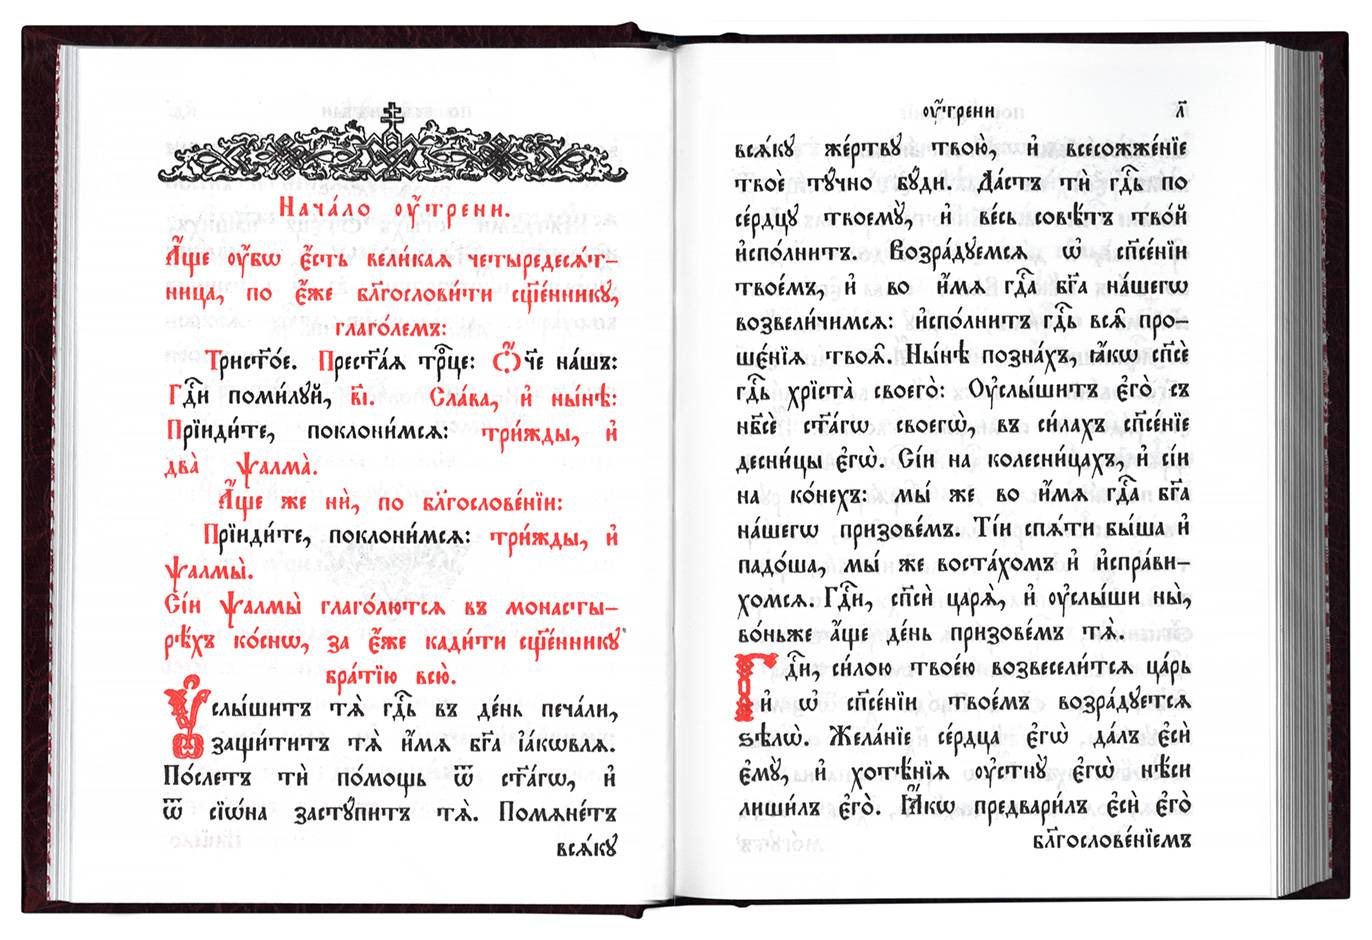 Нача́ло ᲂу҆́трени.
А҆́ще ᲂу҆́бѡ є҆́сть вели́каѧ четыредесѧ́т-
ница, по є҆́же бл҃гослови́ти сщ҃е́ннику,
глаго́лемъ:
Трист҃о́е. Прест҃а́ѧ трⷪ҇це: Ѻ҆́ч҃е на́шъ:
Гдⷭ҇и поми́лꙋй, в҃і. Сла́ва, и҆ ны́нѣ:
Прїиди́те, поклони́мсѧ: три́жды, и҆
два̀ ѱалма̀.
А҆́ще же нѝ, по бл҃гослове́нїи:
Прїиди́те, поклони́мсѧ: три́жды, и҆
ѱалмы̀.
Сі́и ѱалмы̀ глаго́лютсѧ въ монасты-
рѣ́хъ ко́снѡ, за є҆́же кади́ти сщ҃е́ннику
бра́тїю всю̀.
Оу҆слы́шитъ тѧ̀ гдⷭ҇ь въ де́нь печа́ли,
защи́титъ тѧ̀ и҆́мѧ бг҃а і҆а́кѡвлѧ.
По́слетъ тѝ по́мощь ѿ ст҃а́гѡ, и҆
ѿ сїѡ́на засту́питъ тѧ̀. Помѧне́тъ
всѧ́кꙋ
ᲂу҆́трени л҃
всѧ́кꙋ же́ртвꙋ твою̀, и҆ всесожже́нїе
твоѐ тꙋ́чно бꙋ́ди. Да́стъ тѝ гдⷭ҇ь по
се́рдцꙋ твоемꙋ̀, и҆ ве́сь совѣ́тъ тво́й
и҆спо́лнитъ. Возра́дꙋемсѧ ѡ҆ сп҃се́нїи
твое́мъ, и҆ во и҆́мѧ гдⷭ҇а бг҃а на́шегѡ
возвели́чимсѧ: и҆спо́лнитъ гдⷭ҇ь всѧ̑ про-
ше́нїѧ твоѧ̑. Ны́нѣ позна́хъ, ꙗ҆́кѡ сп҃сѐ
гдⷭ҇ь хрїста̀ своего̀: Оу҆слы́шитъ є҆го̀ съ
нб҃сѐ ст҃а́гѡ своегѡ̀, въ си́лахъ сп҃се́нїе
десни́цы є҆гѡ̀. Сі́и на колесни́цахъ, и҆ сі́и
на ко́нехъ: мы́ же во и҆́мѧ гдⷭ҇а бг҃а
на́шегѡ призове́мъ. Ті́и спѧ́ти бы́ша и҆
падо́ша, мы́ же воста́хомъ и҆ и҆спра́ви-
хомсѧ. Гдⷭ҇и, сп҃сѝ царѧ̀, и҆ ᲂу҆слы́ши ны̀,
во́ньже а҆́ще де́нь призове́мъ тѧ̀.
Гдⷭ҇и, си́лою твое́ю возвесели́тсѧ ца́рь
и҆ ѡ҆ сп҃се́нїи твое́мъ возра́дꙋетсѧ
ѕѣлѡ̀. Жела́нїе се́рдца є҆гѡ̀ да́лъ є҆сѝ
є҆мꙋ̀, и҆ хотѣ́нїѧ ᲂу҆стнꙋ̀ є҆гѡ̀ нѣ́си
лиши́лъ є҆го̀. Ꙗ҆́кѡ предвари́лъ є҆сѝ є҆го̀
бл҃гослове́нїемъ